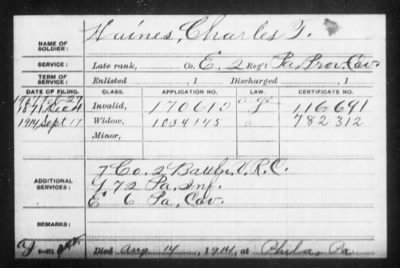 Haines, Charles T.
NAME OF SOLDIER:
SERVICE: Late rank, Co. E, 2 Reg't Pa. Prov. Cav.
TERM OF SERVICE: Enlisted , 1 Discharged , 1
DATE OF FILING. CLASS. APPLICATION NO. LAW. CERTIFICATE NO.
1871 Invalid, 170612 116641
1914 Sept 17 Widow, 1034145 782312
Minor,
ADDITIONAL SERVICES:
7 Co. 2 Batt'n V.R.C.
72 Pa. Inf.
E 6 Pa. Cav.
REMARKS:
Died Aug 14, 1914, at Phila, Pa